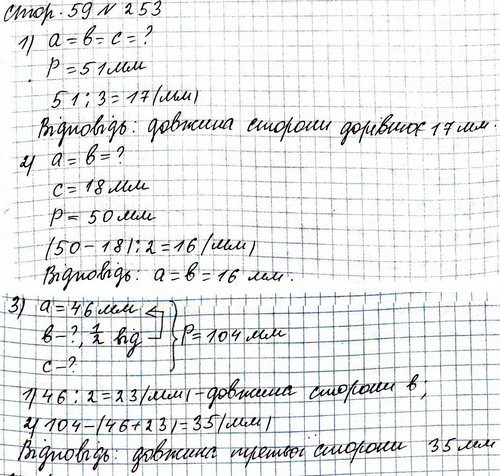 Стор. 59 № 253
1) a = в = с = ?
P = 51 мм
51 : 3 = 17 (мм)
Відповідь: довжина сторони дорівнює 17 мм.
2) a = в = ?
с = 18 мм
P = 50 мм
(50 - 18) : 2 = 16 (мм)
Відповідь: a = в = 16 мм.
3) a = 46 мм
в - ?, 1/2 від
P = 104 мм
с - ?
1) 46 : 2 = 23 (мм) - довжина сторони в;
2) 104 - (46 + 23) = 35 (мм)
Відповідь: довжина третьої сторони 35 мм